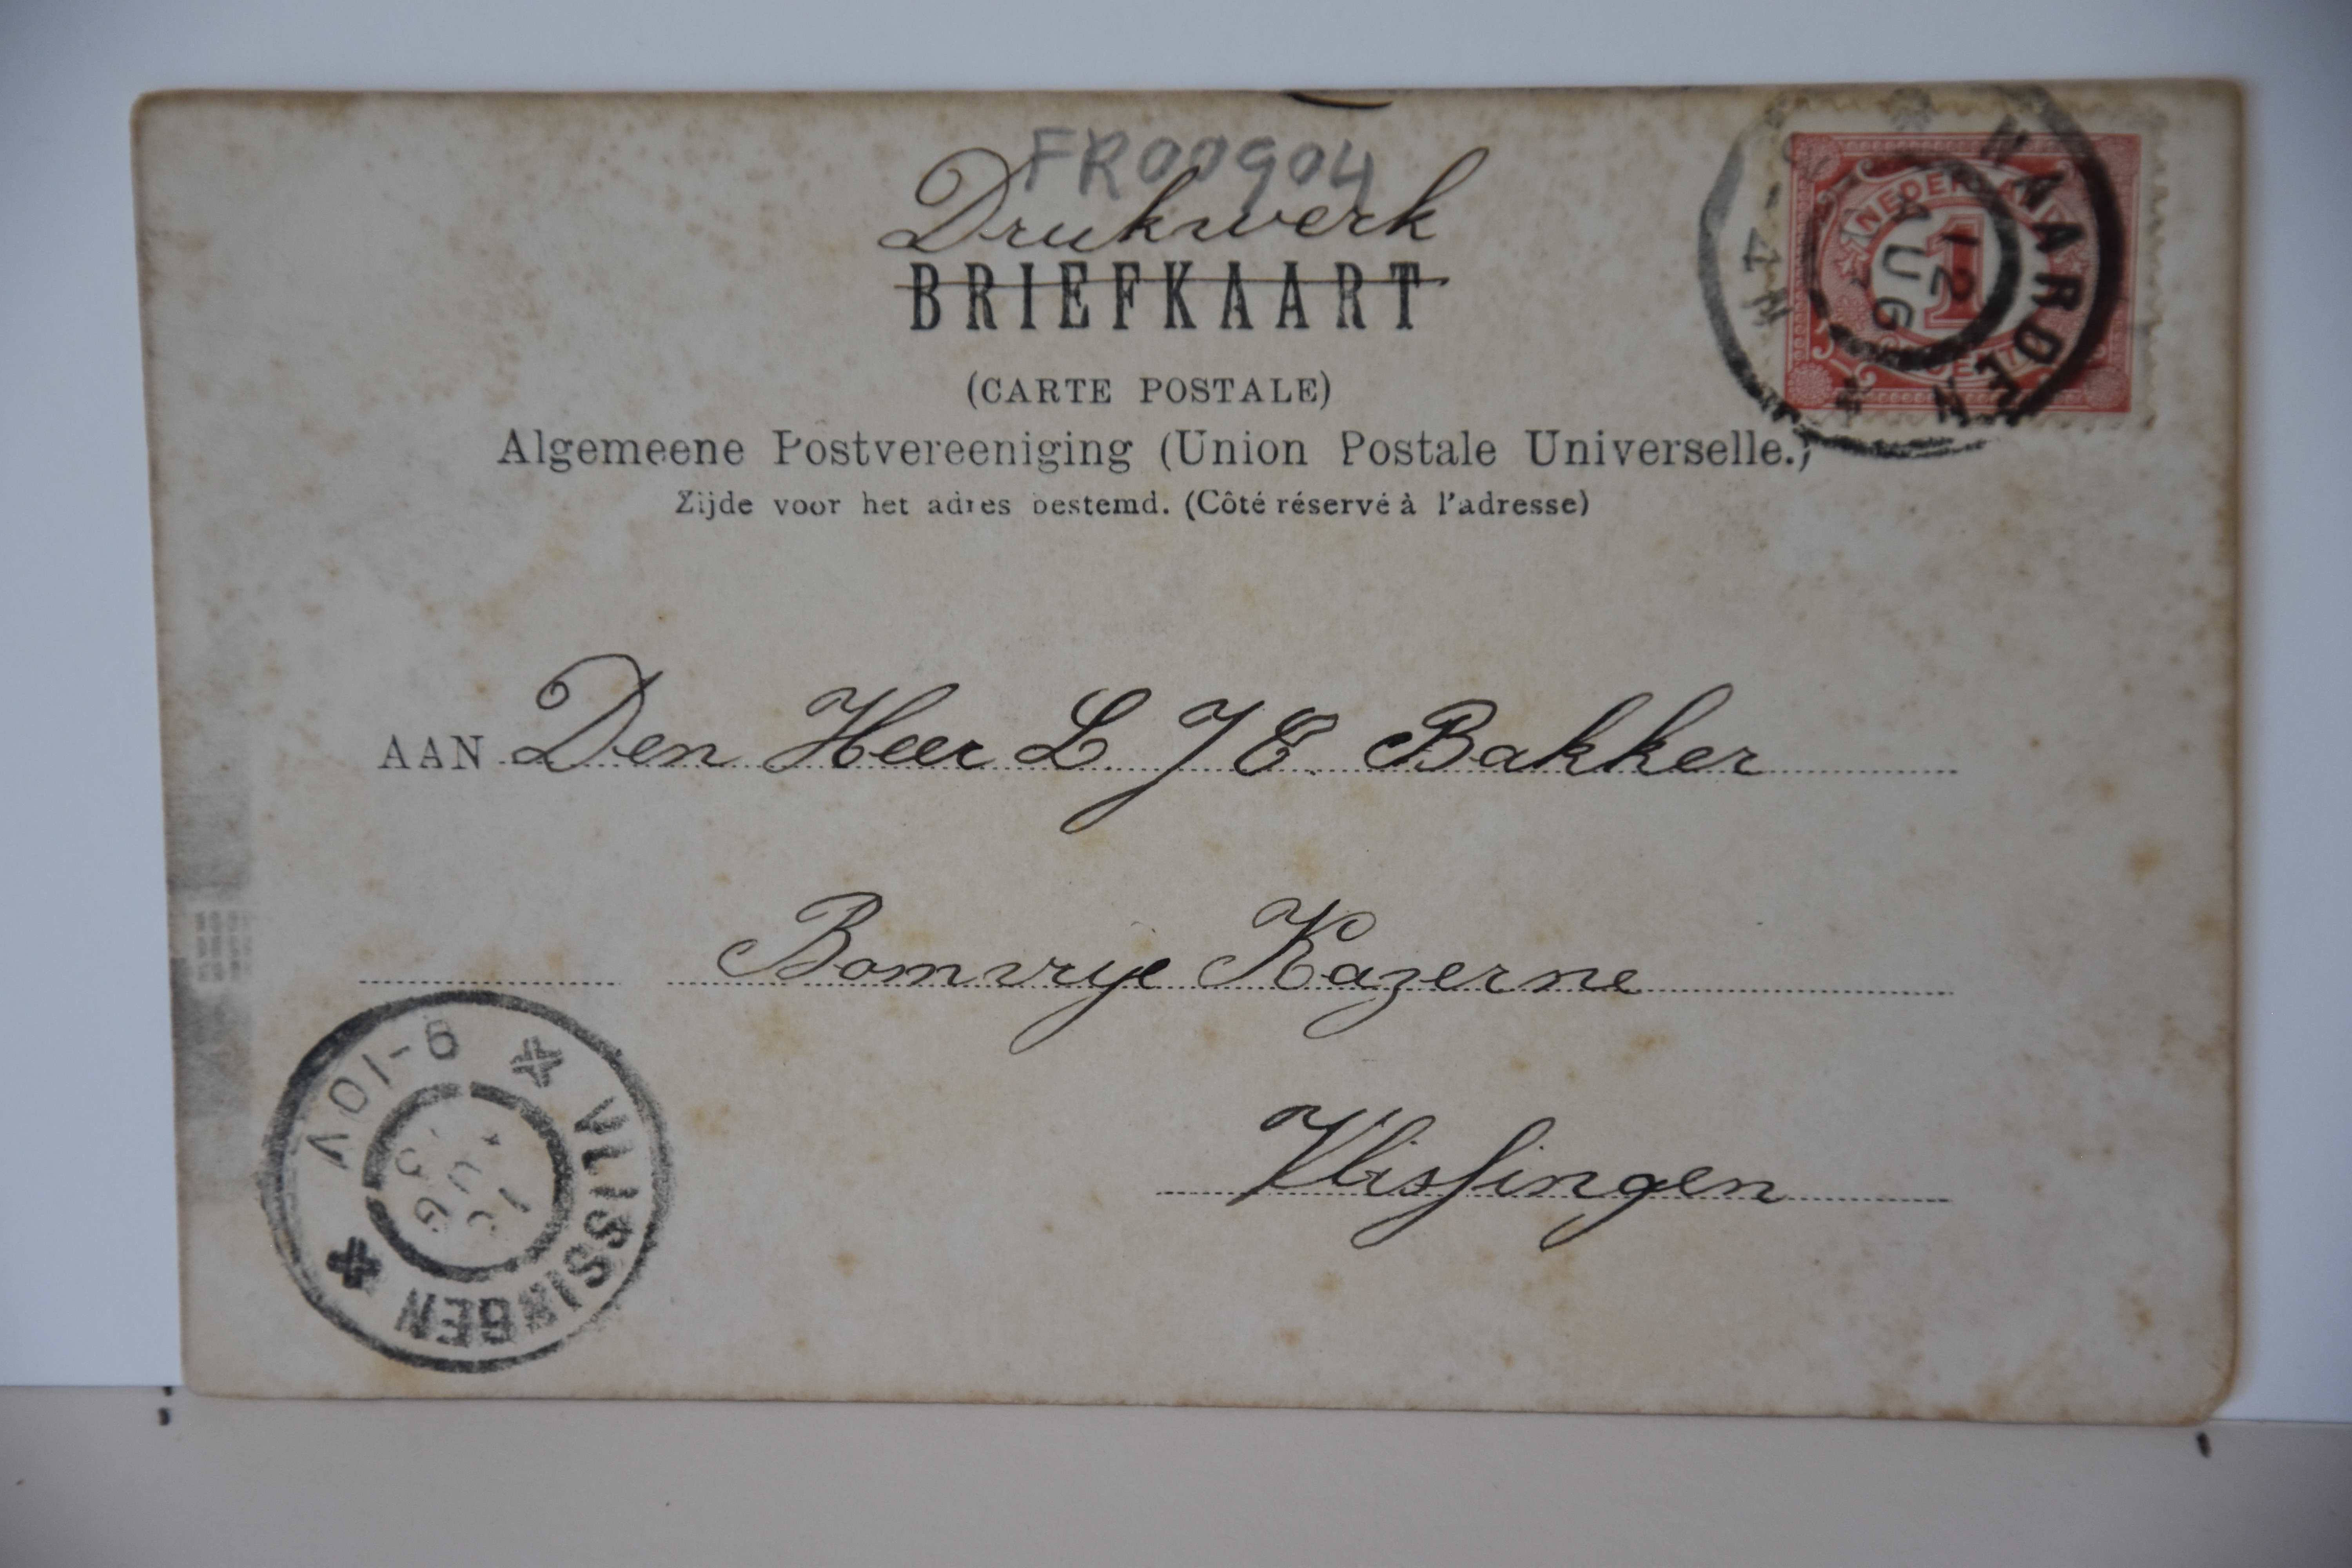 FR00904
Drukwerk
BRIEFKAART
(CARTE POSTALE)
Algemeene Postvereeniging (Union Postale Universelle.)
Zijde voor het adres bestemd. (Côté réservé à l'adresse)
NAARDEN
12
AUG
NEDERLAND
1
AAN Den Heer L. J E. Bakker
Bomvrije Kazerne
Vlissingen
VLISSINGEN
9-10V
AUG